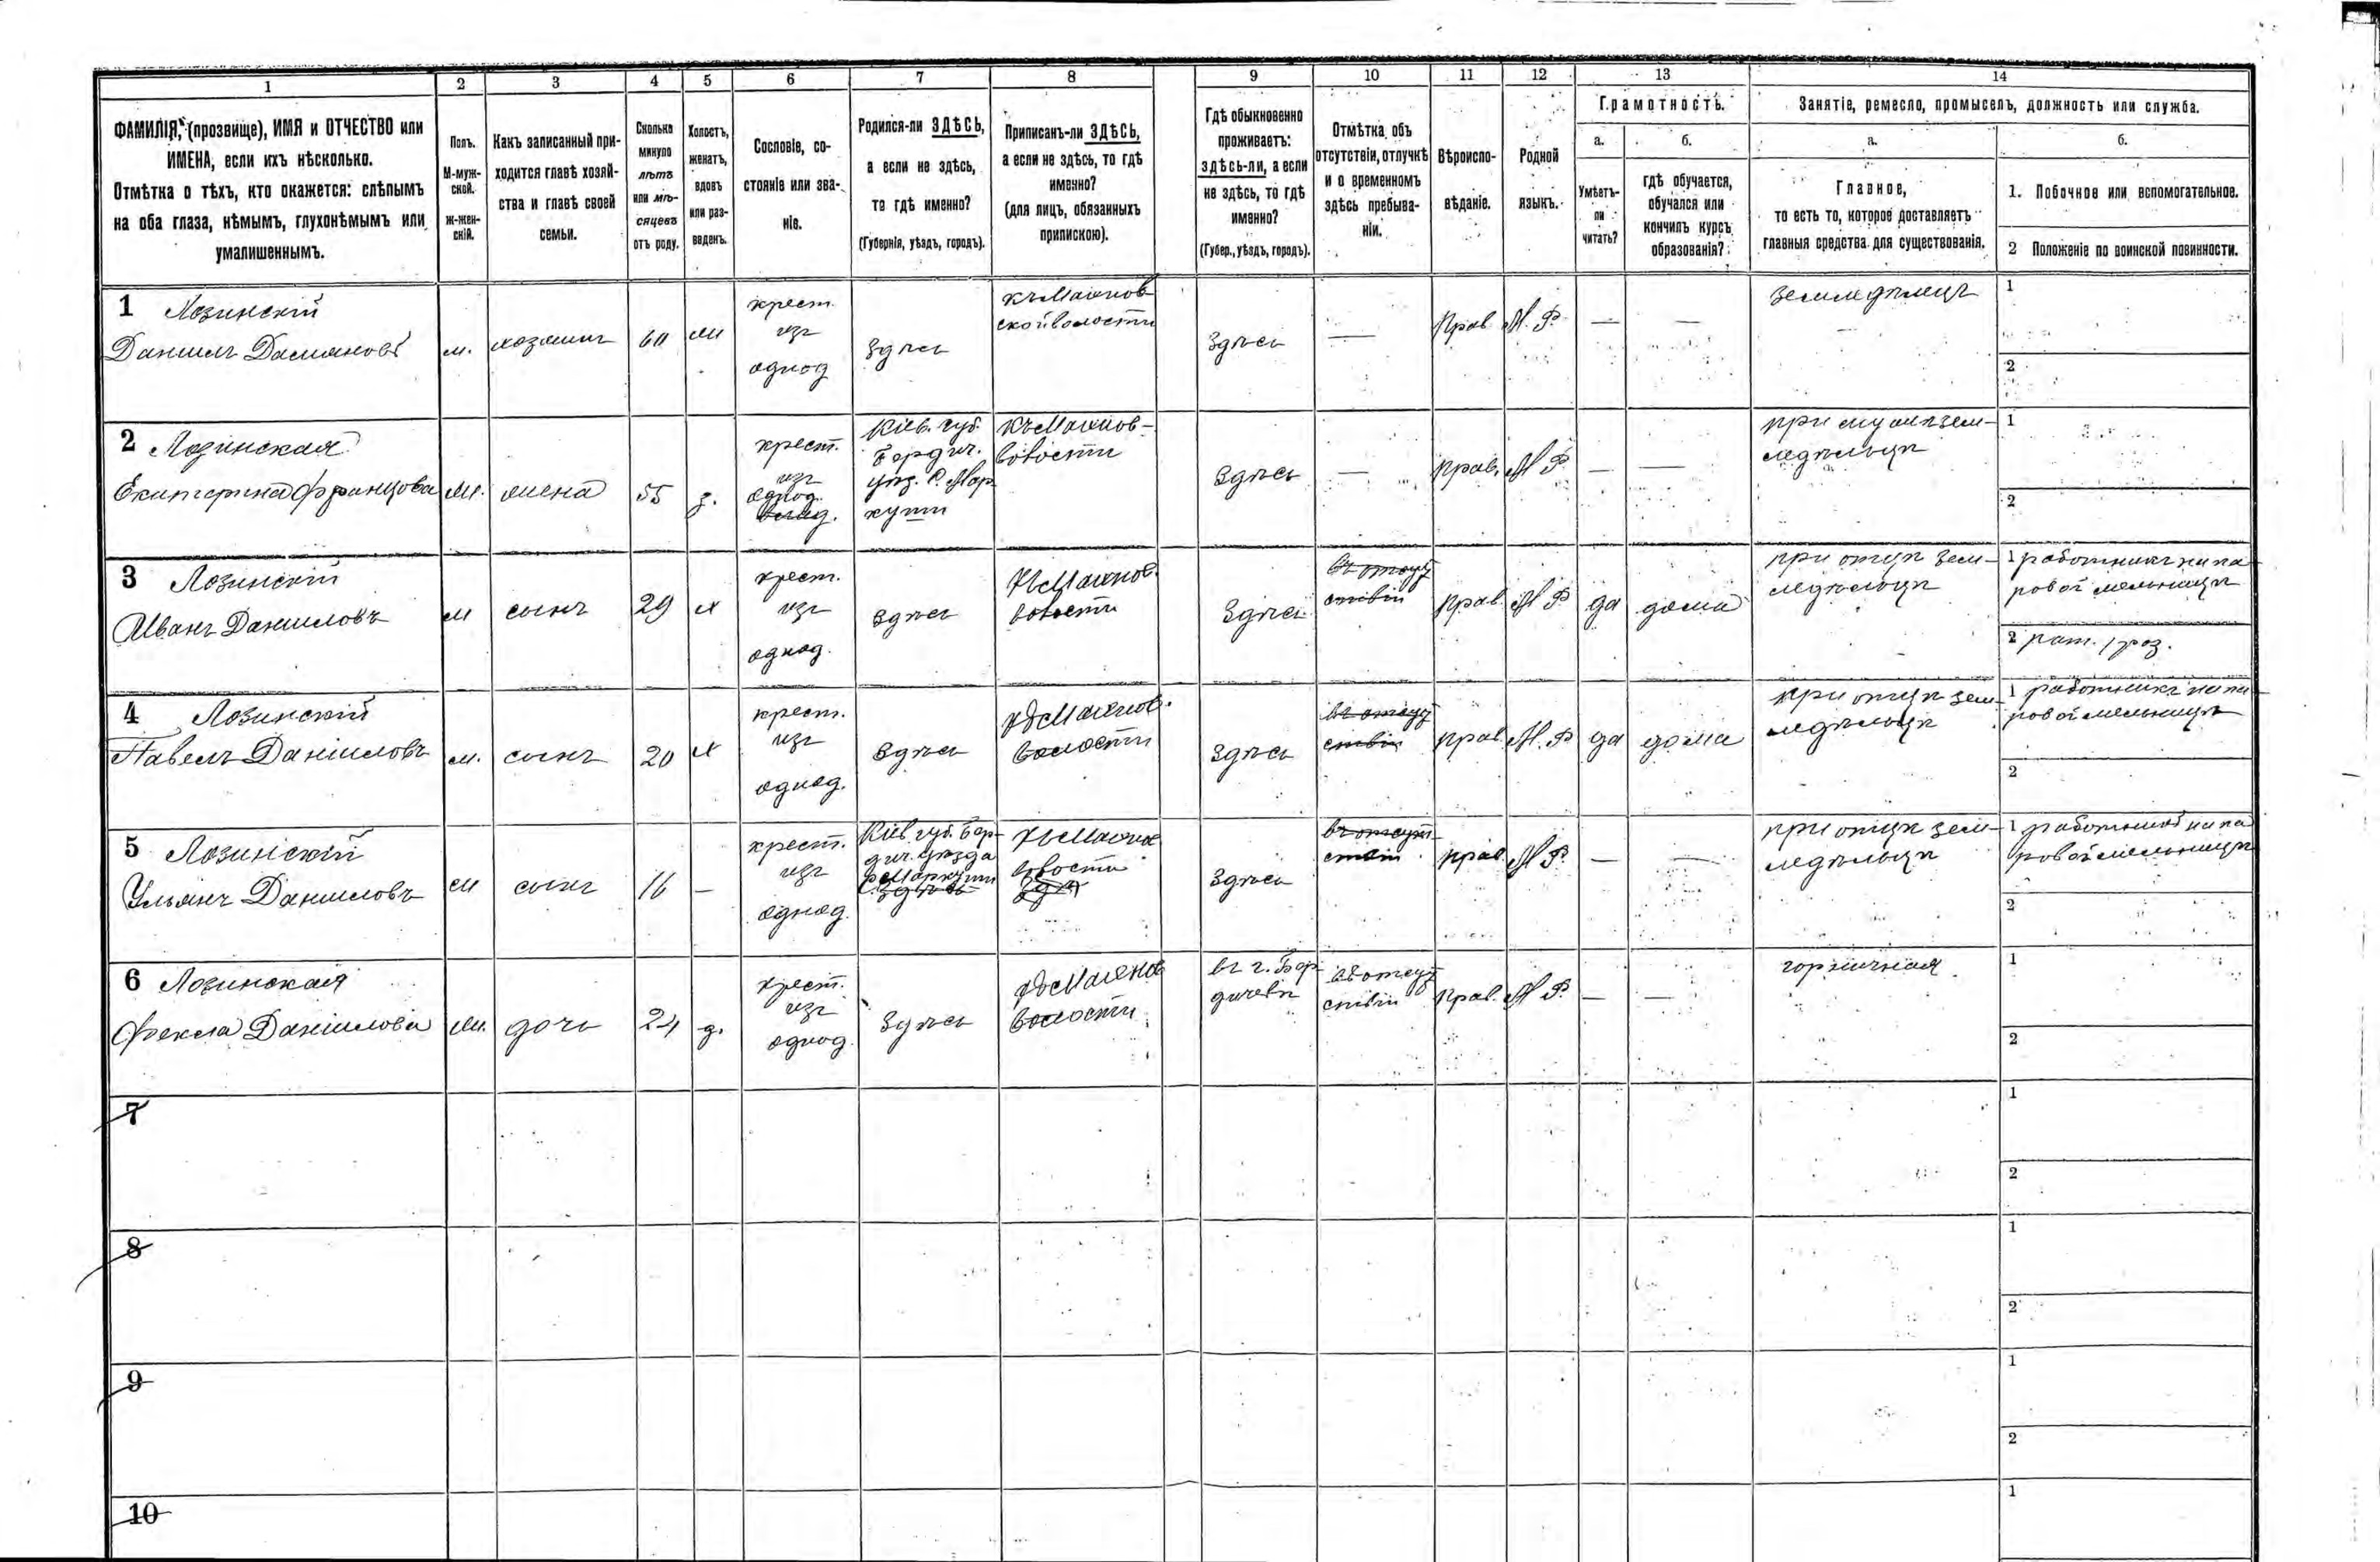 1 2 3 4 5 6 7 8 9 10 11 12 13 14
ФАМИЛІЯ, (прозвище), ИМЯ и ОТЧЕСТВО или
ИМЕНА, если ихъ нѣсколько.
Отмѣтка о тѣхъ, кто окажется: слѣпымъ
на оба глаза, нѣмымъ, глухонѣмымъ или
умалишеннымъ.
Полъ.
М-муж-
ской.
ж-жен-
скій.
Какъ записанный при-
ходится главѣ хозяй-
ства и главѣ своей
семьи.
Сколько
минуло
лѣтъ
или мѣ-
сяцевъ
отъ роду.
Холостъ,
женатъ,
вдовъ
или раз-
веденъ.
Сословіе, со-
стояніе или зва-
ніе.
Родился-ли ЗДѢСЬ,
а если не здѣсь,
то гдѣ именно?
(Губернія, уѣздъ, городъ).
Приписанъ-ли ЗДѢСЬ,
а если не здѣсь, то гдѣ
именно?
(для лицъ, обязанныхъ
припискою).
Гдѣ обыкновенно
проживаетъ:
здѣсь-ли, а если
не здѣсь, то гдѣ
именно?
(Губер., уѣздъ, городъ).
Отмѣтка объ
отсутствіи, отлучкѣ
и о временномъ
здѣсь пребыва-
ніи.
Вѣроиспо-
вѣданіе.
Родной
языкъ.
Грамотность.
а.
Умѣетъ-
ли
читать?
б.
гдѣ обучается,
обучался или
кончилъ курсъ
образованія?
Занятіе, ремесло, промыселъ, должность или служба.
а.
Главное,
то есть то, которое доставляетъ
главныя средства для существованія.
б.
1. Побочное или вспомогательное.
2 Положеніе по воинской повинности.
1 Лозинскій
Данилъ Даміановъ
м.
хозяинъ
60
ж
крест.
изъ
однод
Здѣсь
къ Махнов
ской волости
Здѣсь
—
Прав
М. Р.
—
—
земледѣлецъ
1
2
2 Лозинская
Екатерина Францова
ж.
жена
55
з.
крест.
изъ
однод.
Кіев. губ.
Бердич.
уѣз. С. Мар
куши
къ Махнов-
волости
Здѣсь
—
прав.
М Р
—
—
при мужѣ зем-
ледѣльцѣ
1
2
3 Лозинскій
Иванъ Даниловъ
м
сынъ
29
х
крест.
изъ
однод.
Здѣсь
Къ Махнов.
волости
Здѣсь
въ отсут
ствіи
прав.
М Р
да
дома
при отцѣ зем-
ледѣльцѣ
1 работникъ на па
ровой мельницѣ
2 рат. 1 раз.
4 Лозинскій
Павелъ Даніиловъ
м.
сынъ
20
х
крест.
изъ
однод.
Здѣсь
къ Махнов.
волости
Здѣсь
въ отсут
ствіи
прав.
М. Р
да
дома
при отцѣ зем-
ледѣльцѣ
1 работникъ на па
ровой мельницѣ
2
5 Лозинскій
Ульянъ Даниловъ
м
сынъ
16
—
крест.
изъ
однод.
Кіев губ. Бер-
дич. уѣзда
с Маркуши
здѣсь
къ Махнов
волости
Здѣсь
въ отсут-
ствіи
прав.
М Р.
—
—
при отцѣ зем-
ледѣльцѣ
1 работникъ на па
ровой мельницѣ
2
6 Лозинская
Фекла Даніилова
ж.
дочь
24
д.
крест.
изъ
однод.
Здѣсь
къ Махнов
волости
въ г. Бер
дичевѣ
въ отсут
ствіи
Прав.
М Р.
—
—
горничная
1
2
7
1
2
8
1
2
9
1
2
10
1